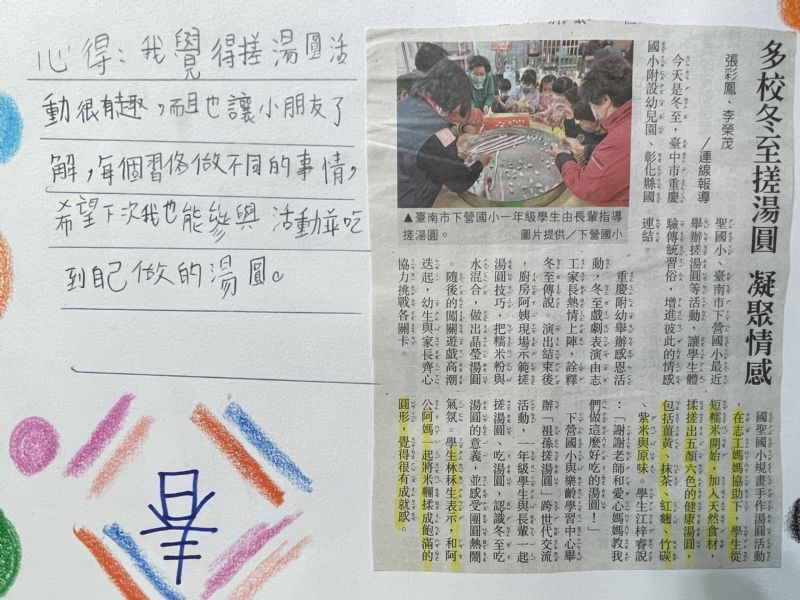 心得:我覺得搓湯圓活
動很有趣,而且也讓小朋友了
解,每個習俗做不同的事情,
希望下次我也能參與活動並吃
到自己做的湯圓。
春
多校冬至搓湯圓 凝聚情感
張彩鳳、李榮茂
/連線報導
今天是冬至,臺中市重慶
國小附設幼兒園、彰化縣國
聖國小、臺南市下營國小最近
舉辦搓湯圓等活動,讓學生體
驗傳統習俗,增進彼此的情感
連結。
▲臺南市下營國小一年級學生由長輩指導
搓湯圓。 圖片提供/下營國小
重慶附幼舉辦感恩活
動,冬至戲劇表演由志
工家長熱情上陣,詮釋
冬至傳說。演出結束後
,廚房阿姨現場示範搓
湯圓技巧,把糯米粉與
水混合,做出晶瑩湯圓
。隨後的闖關遊戲高潮
迭起,幼生與家長齊心
協力挑戰各關卡。
國聖國小規畫手作湯圓活動
,在志工媽媽協助下,學生從
糯米開始,加入天然食材,
揉搓出五顏六色的健康湯圓,
包括薑黃、抹茶、紅麴、竹碳
、紫米與原味。學生江梓睿說
:「謝謝老師和愛心媽媽教我
們做這麼好吃的湯圓!」
下營國小與樂齡學習中心舉
辦「祖孫搓湯圓」跨世代交流
活動,一年級學生與長輩一起
搓湯圓、吃湯圓,認識冬至吃
湯圓的意義,並感受團圓熱鬧
氣氛。學生林秝生表示,和阿
公阿媽一起將米糰揉成飽滿的
圓形,覺得很有成就感。